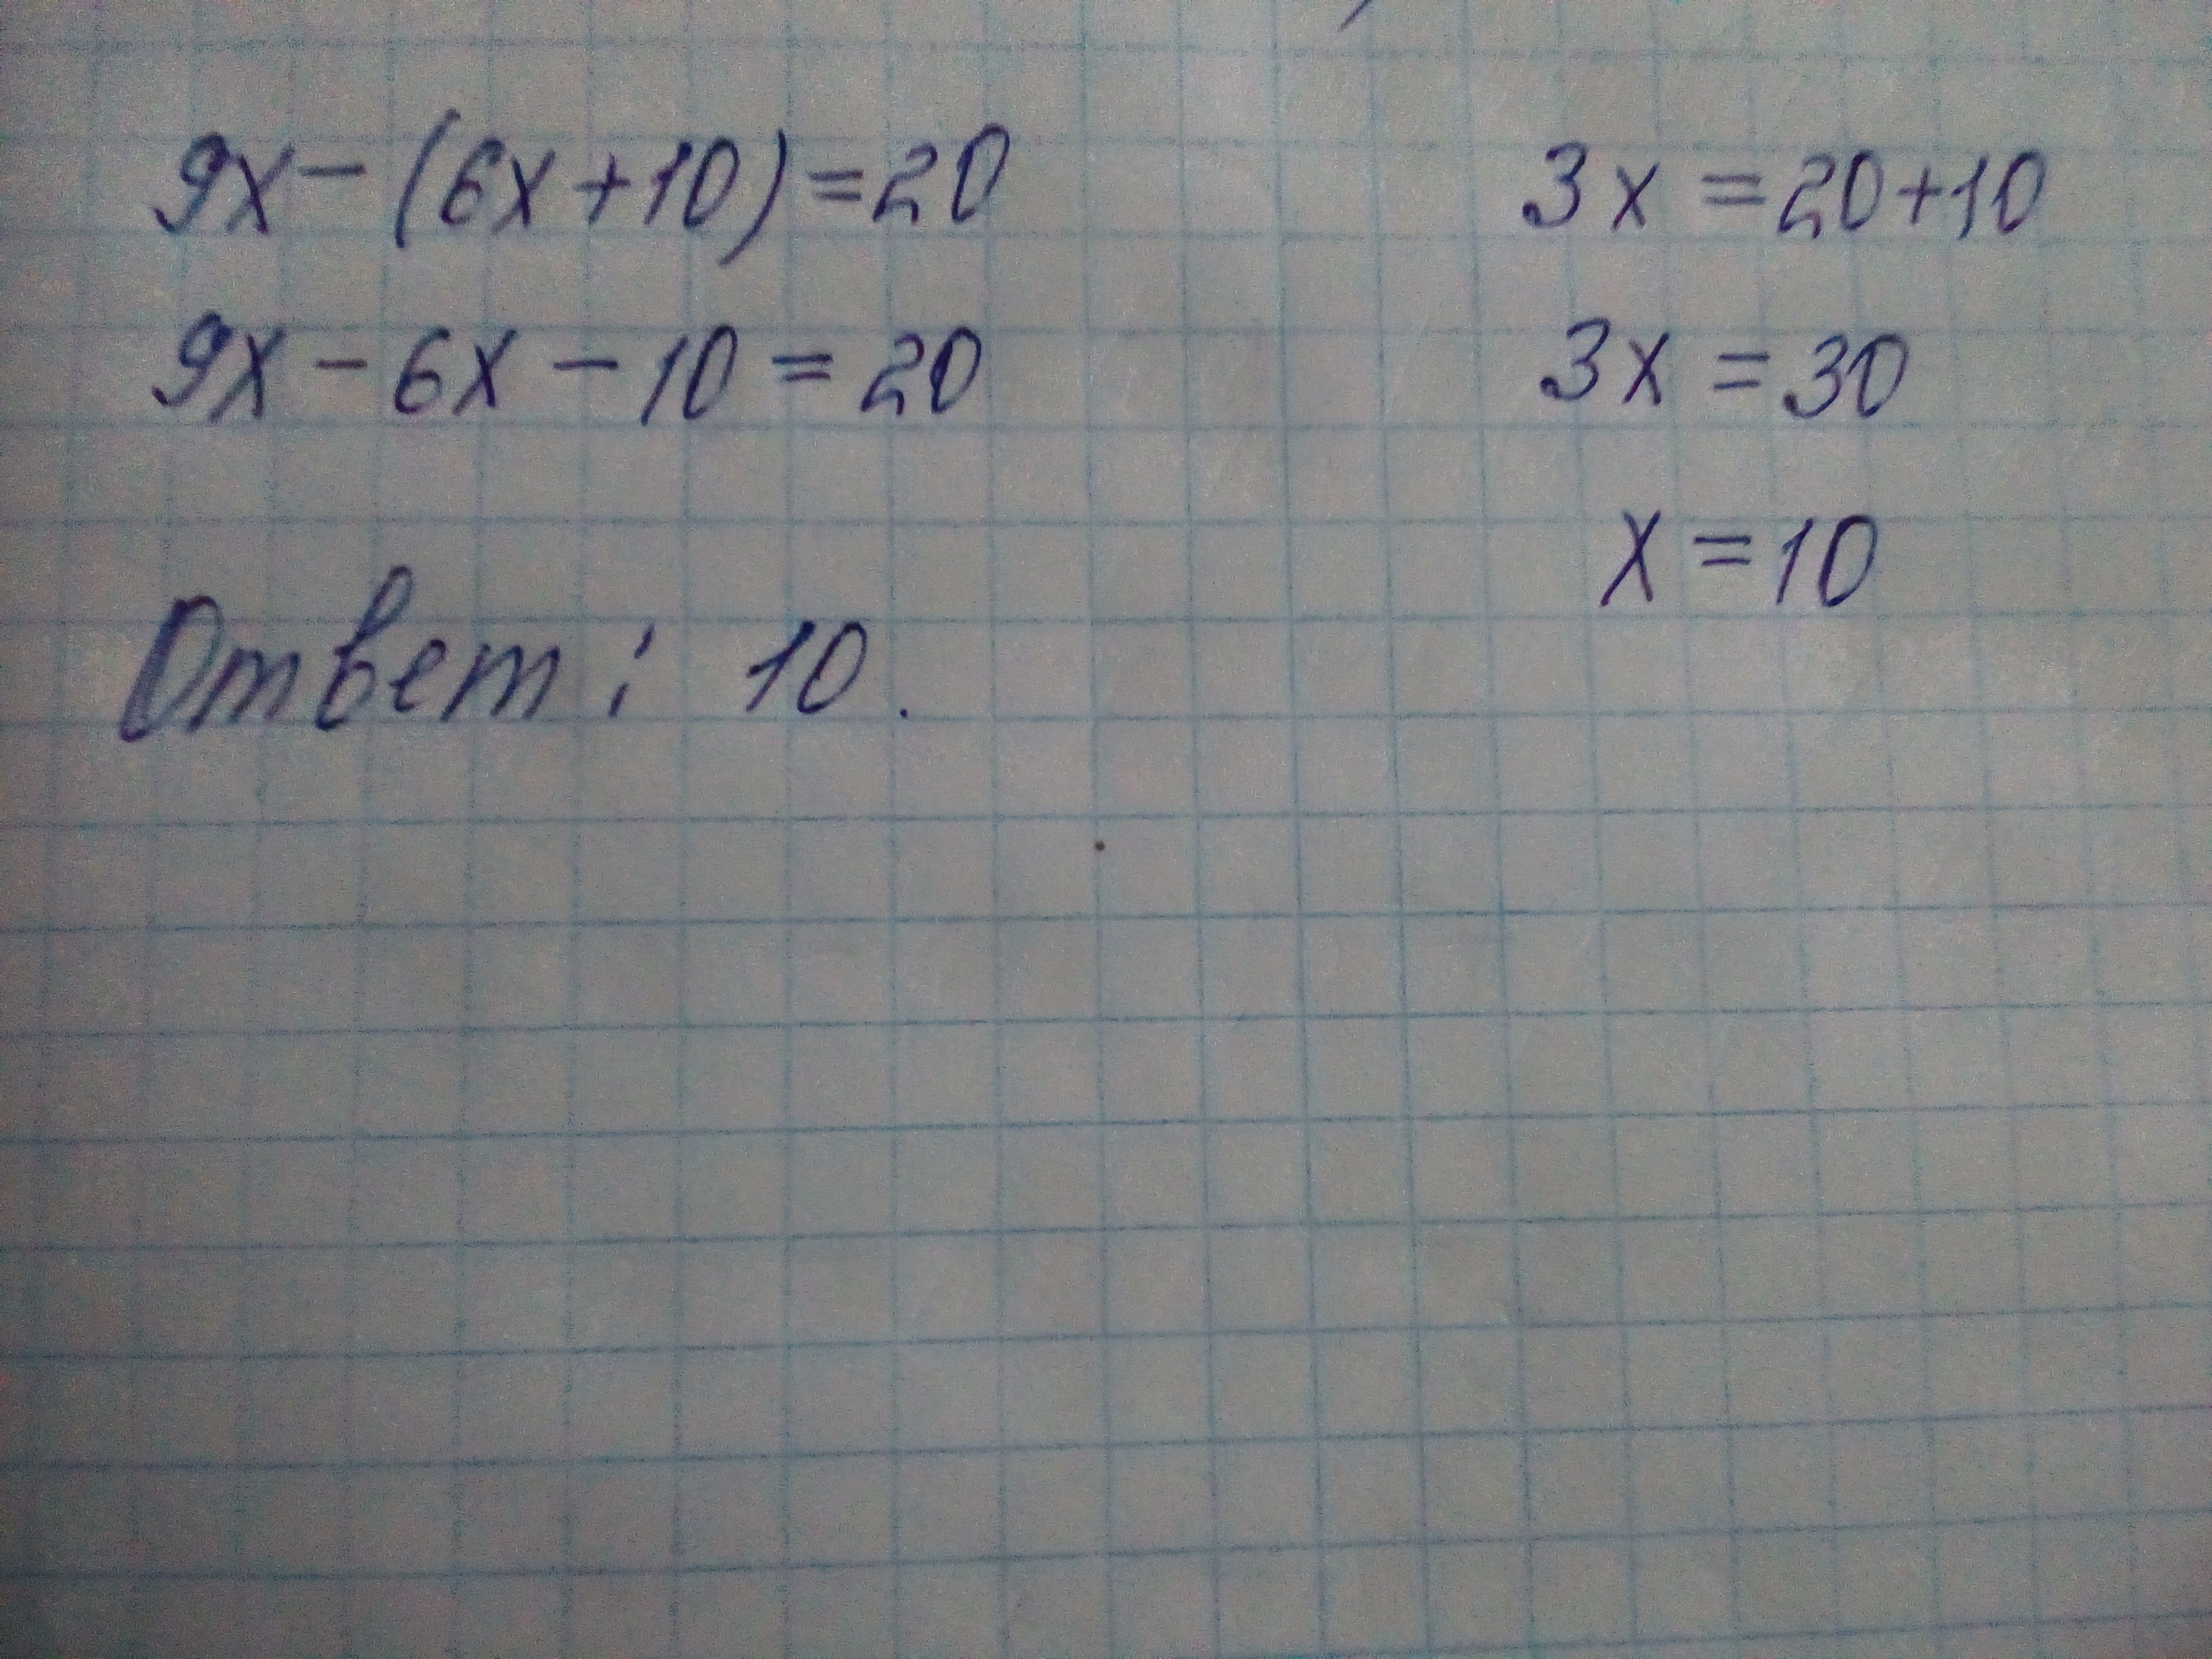 9x - (6x + 10) = 20
9x - 6x - 10 = 20
3x = 20 + 10
3x = 30
x = 10
Ответ: 10.